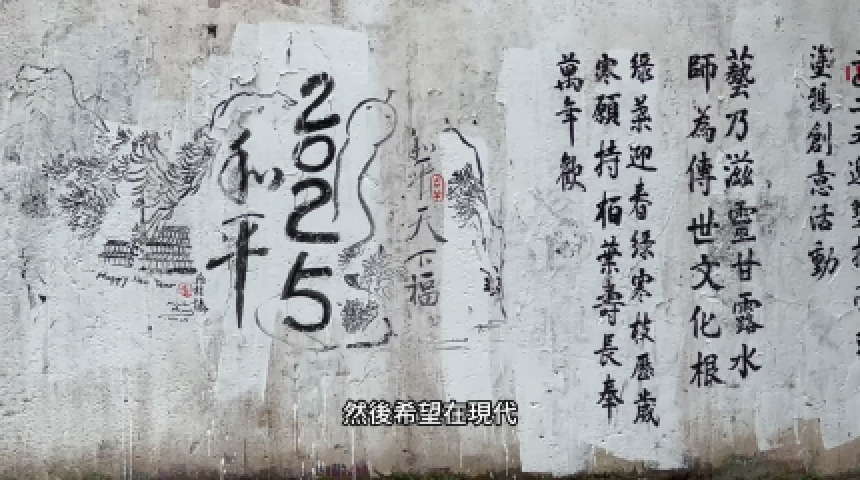 塗鴉創意活動
藝乃滋靈甘露水
師為傳世文化根
綠葉迎春綠寒枝歷歲
寒願持柏葉壽長奉
萬年歡
和平天下福
2025
和平
Happy New Year
然後希望在現代